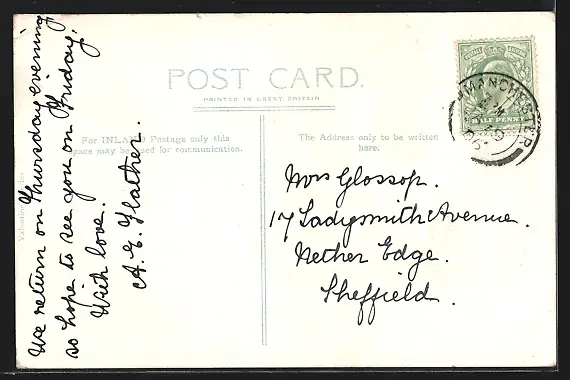 POST CARD.
PRINTED IN GREAT BRITAIN
For INLAND Postage only this
space may be used for communication.
The Address only to be written
here.
We return on Thursday evening
so hope to see you on Friday.
With love.
A. E. Flather.
Mrs Glossop.
17 Ladysmith Avenue.
Nether Edge.
Sheffield.
HALF PENNY
MANCHESTER